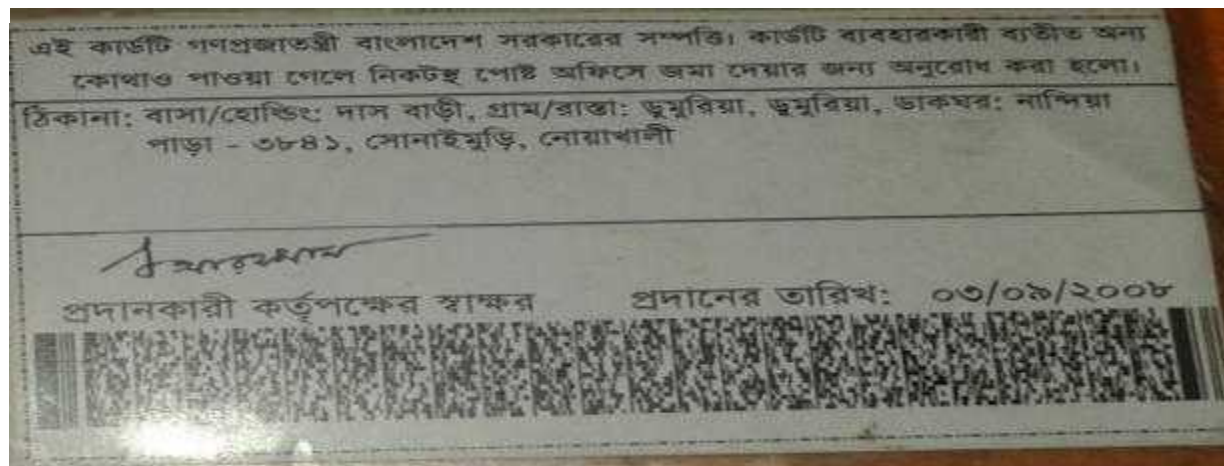 এই কার্ডটি গণপ্রজাতন্ত্রী বাংলাদেশ সরকারের সম্পত্তি। কার্ডটি ব্যবহারকারী ব্যতীত অন্য
কোথাও পাওয়া গেলে নিকটস্থ পোষ্ট অফিসে জমা দেয়ার জন্য অনুরোধ করা হলো।
ঠিকানা: বাসা/হোল্ডিং: দাস বাড়ী, গ্রাম/রাস্তা: ডুমুরিয়া, ডুমুরিয়া, ডাকঘর: নান্দিয়া
পাড়া - ৩৮৪১, সোনাইমুড়ি, নোয়াখালী
প্রদানকারী কর্তৃপক্ষের স্বাক্ষর প্রদানের তারিখ: ০৩/০৯/২০০৮